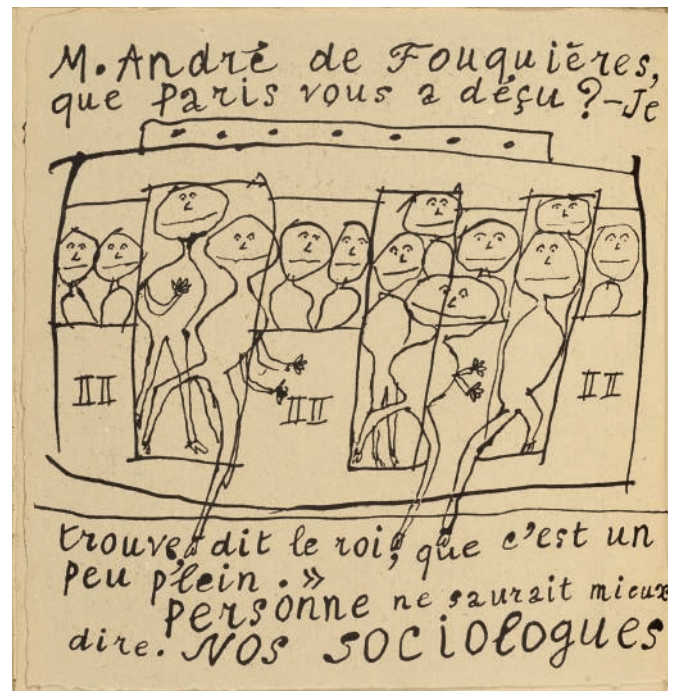 M. André de Fouquières,
que Paris vous a déçu ? – Je
II II II
trouve, dit le roi, que c'est un
peu plein. »
personne ne saurait mieux
dire. Nos sociologues